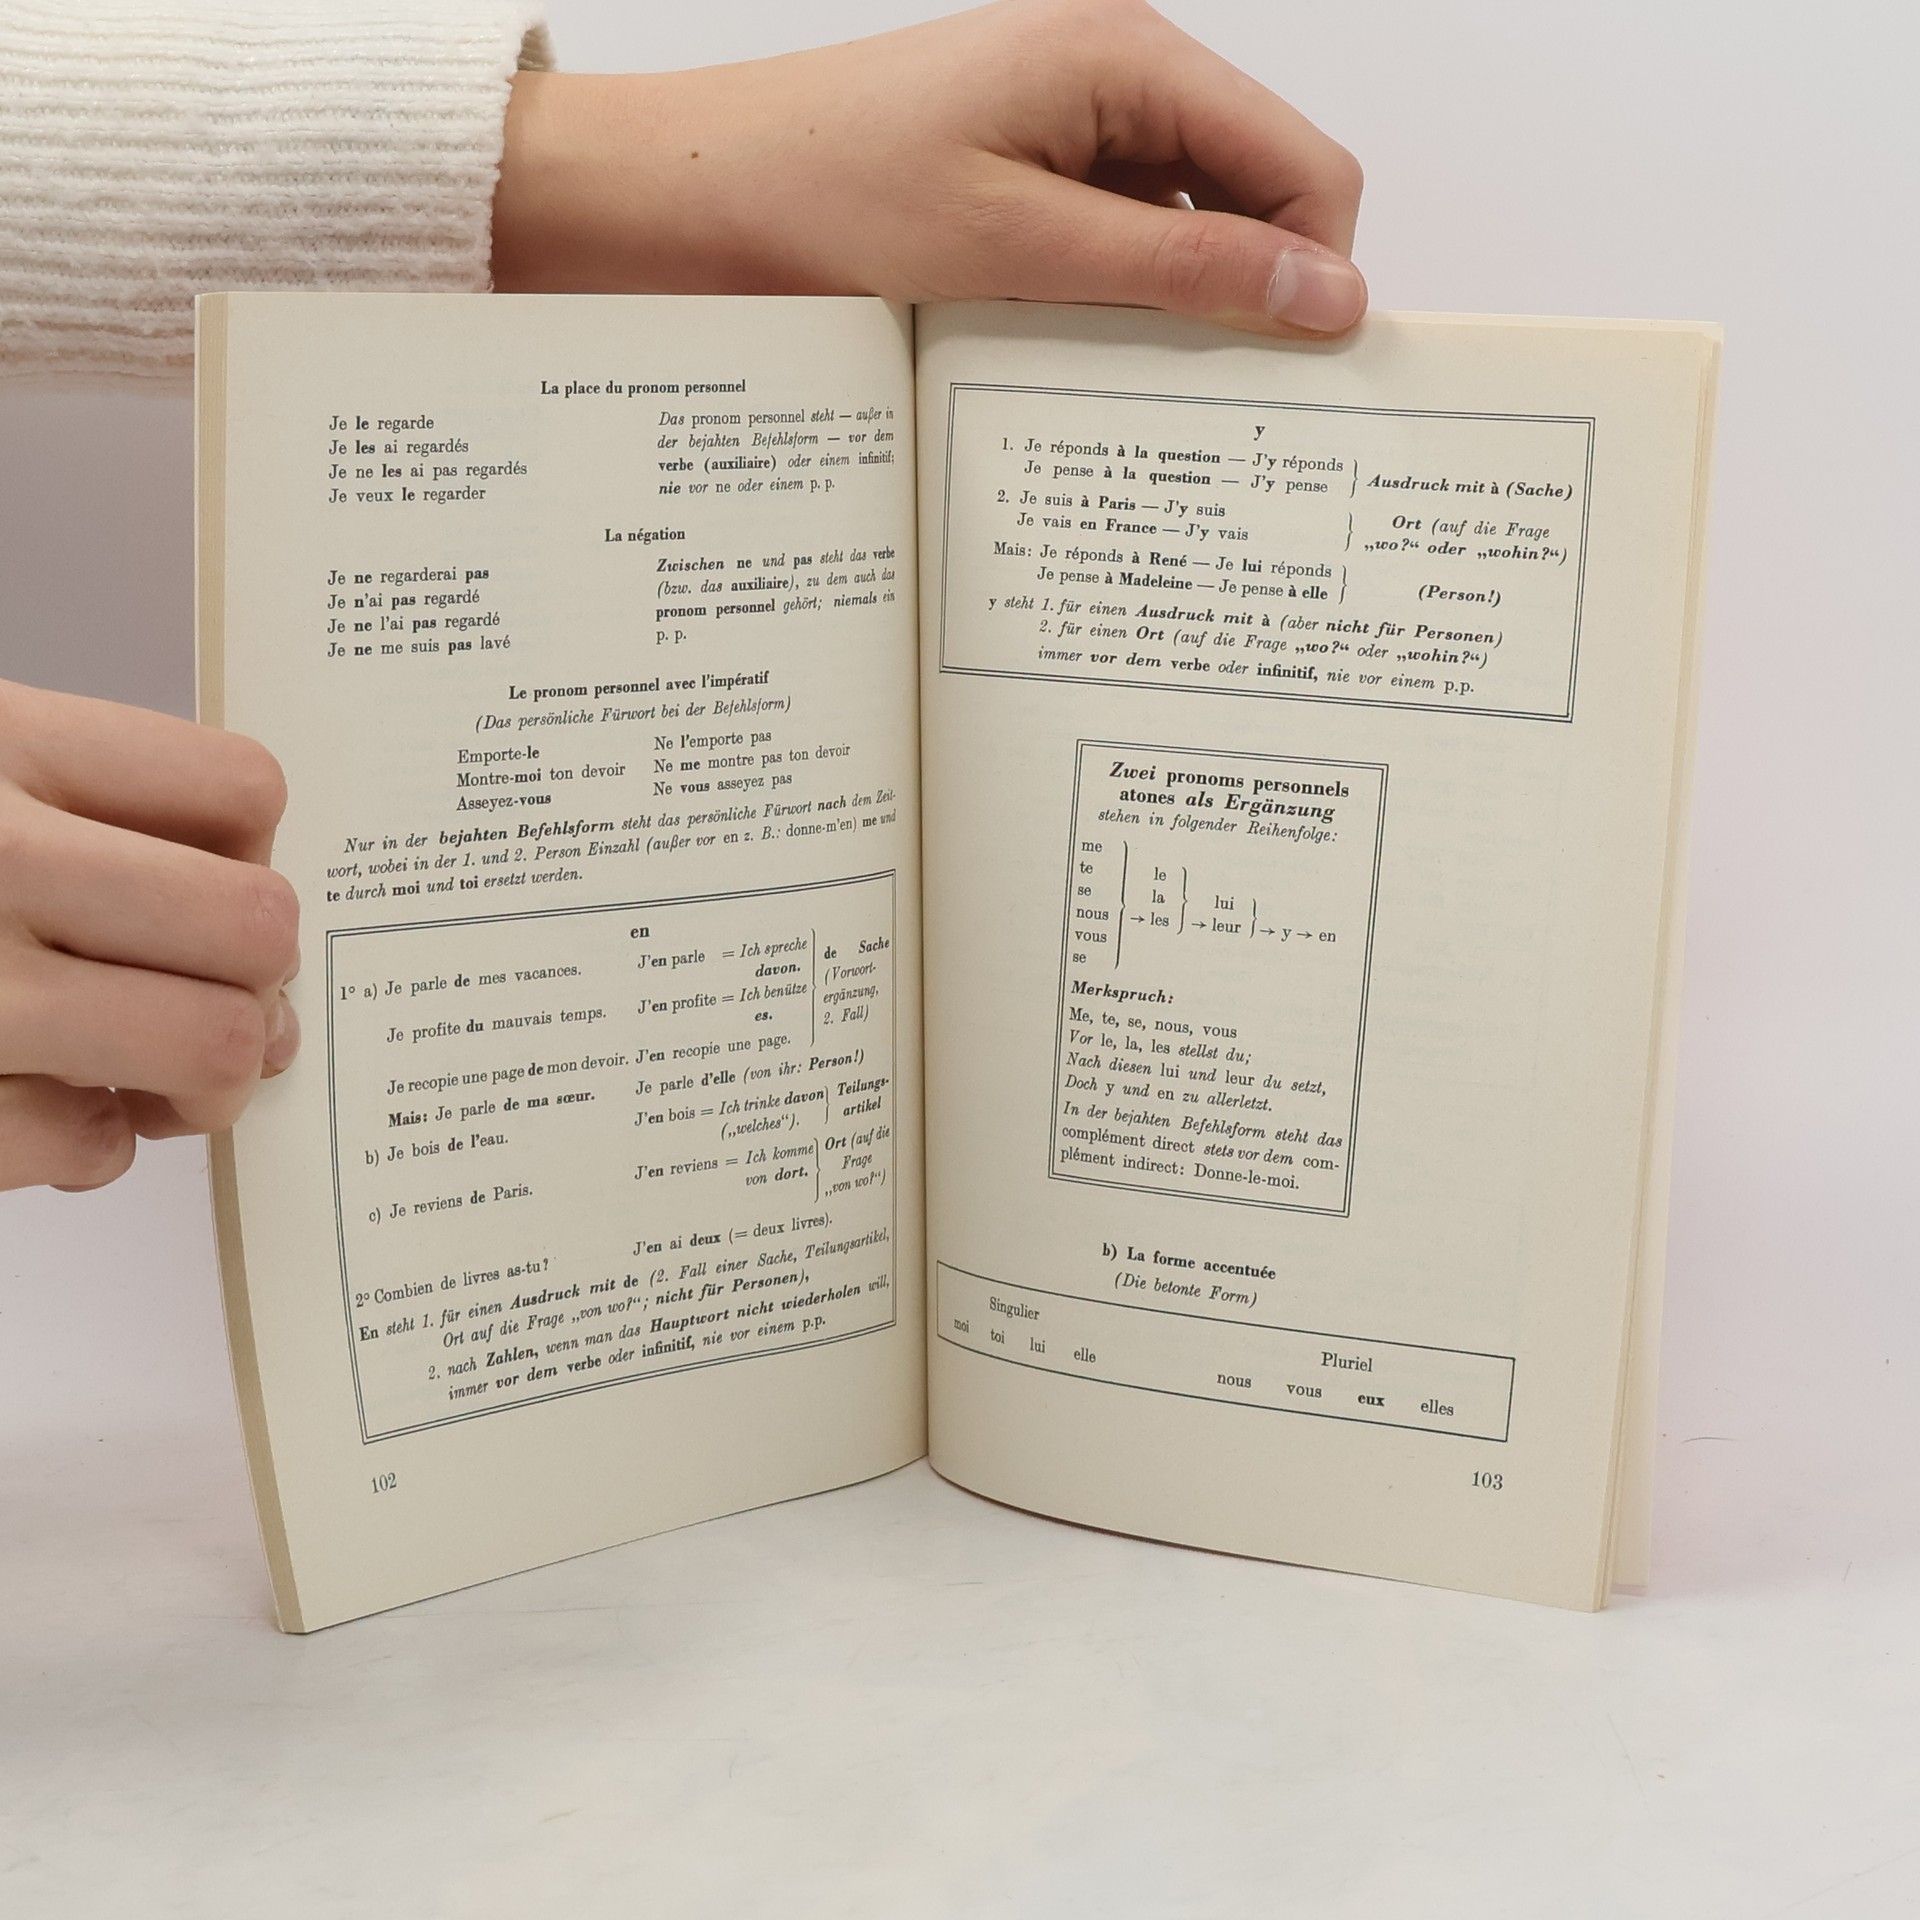 La place du pronom personnel
Je le regarde
Je les ai regardés
Je ne les ai pas regardés
Je veux le regarder
Das pronom personnel steht — außer in
der bejahten Befehlsform — vor dem
verbe (auxiliaire) oder einem infinitif;
nie vor ne oder einem p. p.
La négation
Je ne regarderai pas
Je n'ai pas regardé
Je ne l'ai pas regardé
Je ne me suis pas lavé
Zwischen ne und pas steht das verbe
(bzw. das auxiliaire), zu dem auch das
pronom personnel gehört; niemals ein
p. p.
Le pronom personnel avec l'impératif
(Das persönliche Fürwort bei der Befehlsform)
Emporte-le
Montre-moi ton devoir
Asseyez-vous
Ne l'emporte pas
Ne me montre pas ton devoir
Ne vous asseyez pas
Nur in der bejahten Befehlsform steht das persönliche Fürwort nach dem Zeit-
wort, wobei in der 1. und 2. Person Einzahl (außer vor en z. B.: donne-m'en) me und
te durch moi und toi ersetzt werden.
en
1° a) Je parle de mes vacances.
J'en parle = Ich spreche
davon.
Je profite du mauvais temps.
J'en profite = Ich benütze
es.
de Sache
(Vorwort-
ergänzung,
2. Fall)
Je recopie une page de mon devoir. J'en recopie une page.
Mais: Je parle de ma sœur.
Je parle d'elle (von ihr: Person!)
b) Je bois de l'eau.
J'en bois = Ich trinke davon
(„welches“).
Teilungs-
artikel
c) Je reviens de Paris.
J'en reviens = Ich komme
von dort.
Ort (auf die
Frage
„von wo?“)
2° Combien de livres as-tu?
J'en ai deux (= deux livres).
En steht 1. für einen Ausdruck mit de (2. Fall einer Sache, Teilungsartikel,
Ort auf die Frage „von wo?“; nicht für Personen),
2. nach Zahlen, wenn man das Hauptwort nicht wiederholen will,
immer vor dem verbe oder infinitif, nie vor einem p.p.
102
y
1. Je réponds à la question — J'y réponds
Je pense à la question — J'y pense
Ausdruck mit à (Sache)
2. Je suis à Paris — J'y suis
Je vais en France — J'y vais
Ort (auf die Frage
„wo?“ oder „wohin?“)
Mais: Je réponds à René — Je lui réponds
Je pense à Madeleine — Je pense à elle
(Person!)
y steht 1. für einen Ausdruck mit à (aber nicht für Personen)
2. für einen Ort (auf die Frage „wo?“ oder „wohin?“)
immer vor dem verbe oder infinitif, nie vor einem p.p.
Zwei pronoms personnels
atones als Ergänzung
stehen in folgender Reihenfolge:
me
te
se
nous
vous
se
le
la
→ les
lui
→ leur
→ y → en
Merkspruch:
Me, te, se, nous, vous
Vor le, la, les stellst du;
Nach diesen lui und leur du setzt,
Doch y und en zu allerletzt.
In der bejahten Befehlsform steht das
complément direct stets vor dem com-
plément indirect: Donne-le-moi.
b) La forme accentuée
(Die betonte Form)
Singulier
moi toi lui elle
Pluriel
nous vous eux elles
103